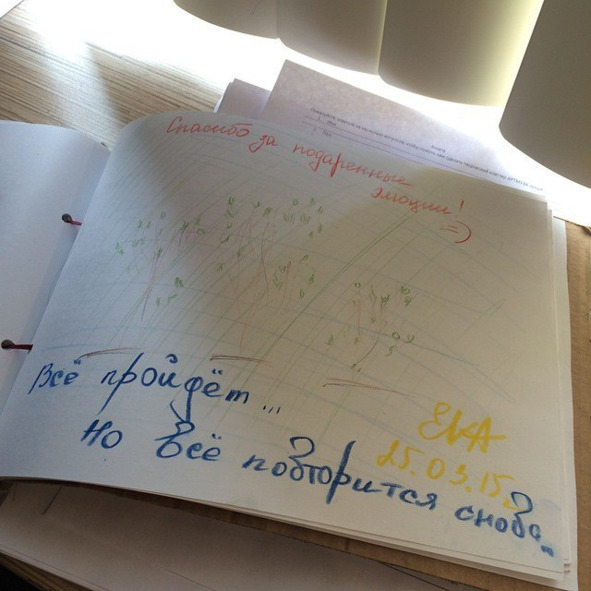 Спасибо за подаренные
эмоции!
=)
Всё пройдёт...
Но всё повторится снова...
ЕКА
25.03.15.